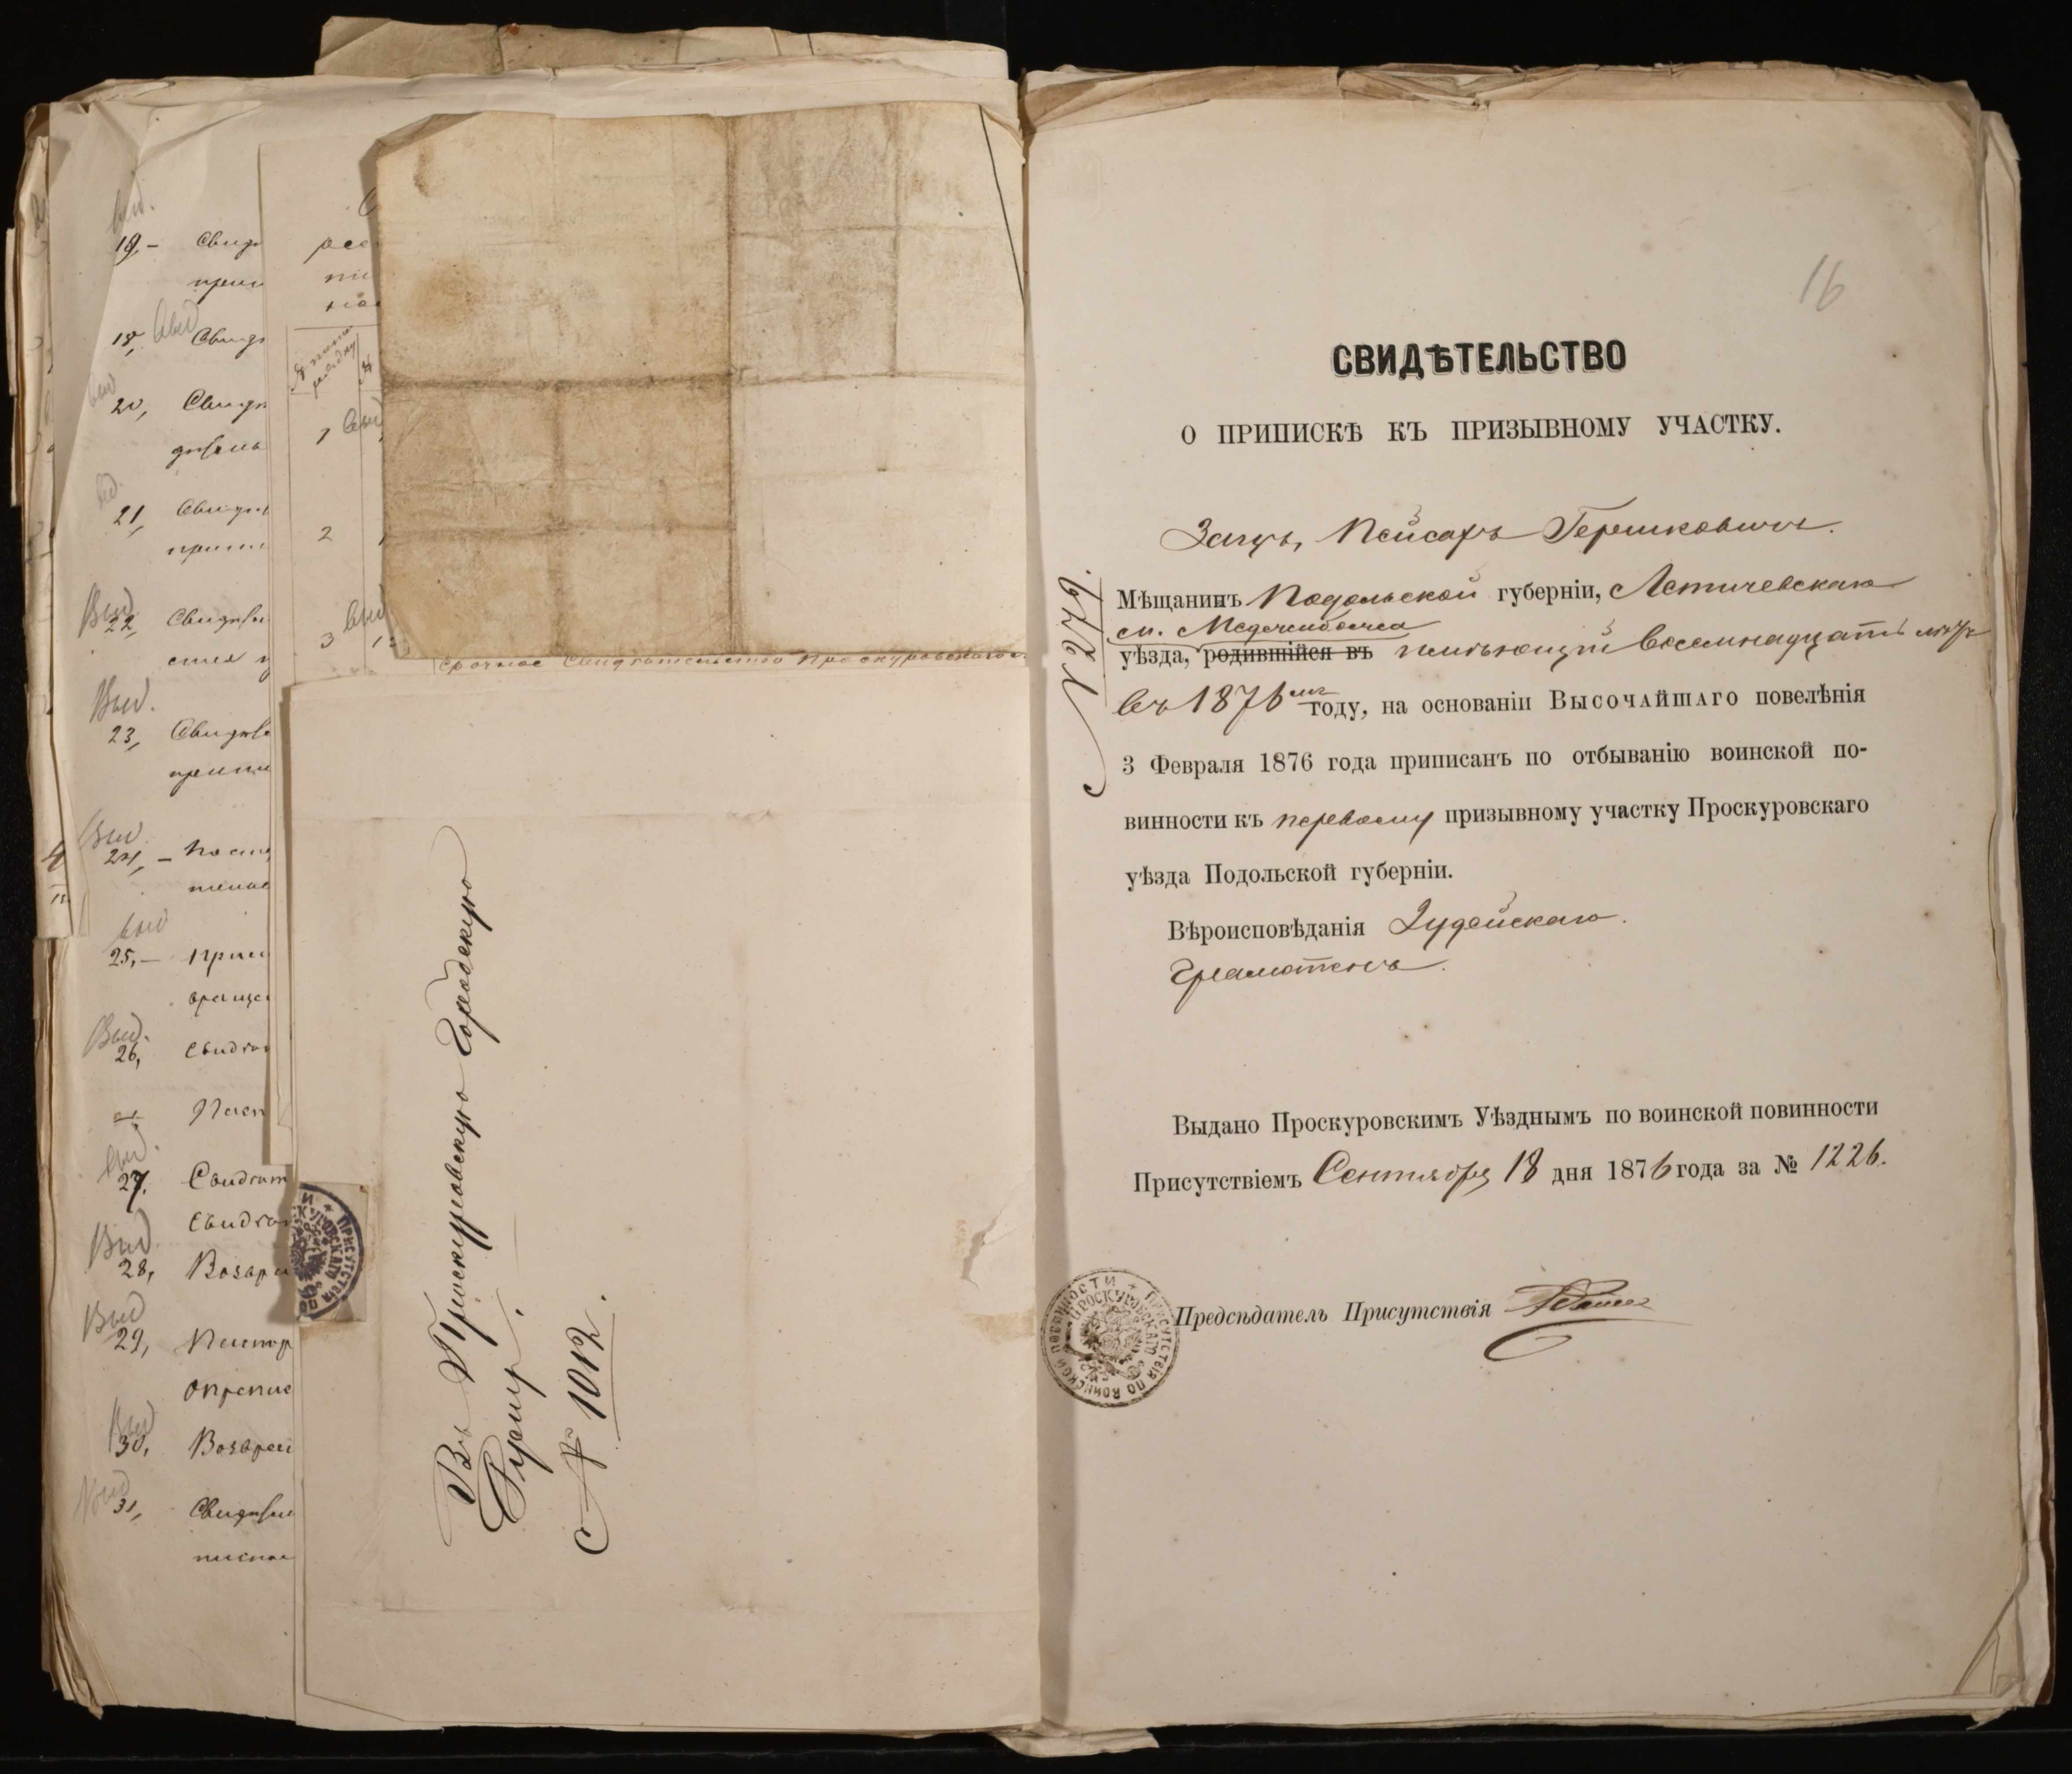 19,- Свидѣ
18,
20, Свидѣ
21, Свидѣ
22, Свидѣ
23, Свидѣ
24, -
25,-
26, Свидѣ
27, Свидѣт
Свидѣ
28, Возвра
29,
30, Возвра
31, Свидѣ
1
2
3
срочное Свидѣтельство Проскуровскаго
Въ Проскуровскую Городскую
Думу.
№ 1012.
16
СВИДѢТЕЛЬСТВО
О ПРИПИСКѢ КЪ ПРИЗЫВНОМУ УЧАСТКУ.
Зацъ, Пейсахъ Гершковичъ.
Мѣщанинъ Подольской губерніи, Летичевскаго
м. Меджибожа
уѣзда, родившійся въ имѣющій восемнадцать лѣтъ
въ 1876 году, на основаніи Высочайшаго повелѣнія
3 Февраля 1876 года приписанъ по отбыванію воинской по-
винности къ первому призывному участку Проскуровскаго
уѣзда Подольской губерніи.
Вѣроисповѣданія Іудейскаго.
Грамотенъ.
Выдано Проскуровскимъ Уѣзднымъ по воинской повинности
Присутствіемъ Сентября 18 дня 1876 года за № 1226.
Предсѣдатель Присутствія
ПРОСКУРОВСКАГО ПРИСУТСТВІЯ ПО ВОИНСКОЙ ПОВИННОСТИ